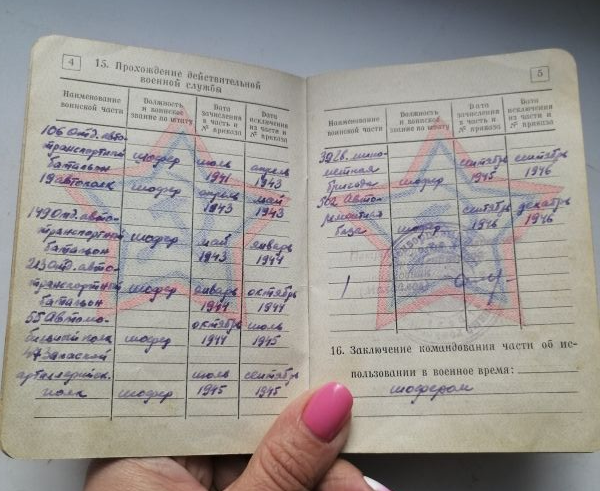 4
15. Прохождение действительной
военной службы
Наименование воинской части
Должность и воинское звание по штату
Дата зачисления в часть и № приказа
Дата исключения из части и № приказа
106 отд. авто-
транспортный шофер июль апрель
батальон 1941 1943
19 автополк шофер апрель май
1943 1943
149 отд. авто-
транспортный шофер май январь
батальон 1943 1944
213 отд. авто-
транспортный шофер январь октябрь
батальон 1944 1944
55 Автомо- октябрь июль
бильный полк шофер 1944 1945
47 запасной
артиллерийск. июль сентябрь
полк шофер 1945 1945
5
Наименование воинской части
Должность и воинское звание по штату
Дата зачисления в часть и № приказа
Дата исключения из части и № приказа
39 гв. мино- сентябрь сентябрь
метная 1945 1946
бригада шофер
362 Авто-
ремонтная сентябрь декабрь
база шофер 1946 1946
16. Заключение командования части об ис-
пользовании в военное время:
шофером